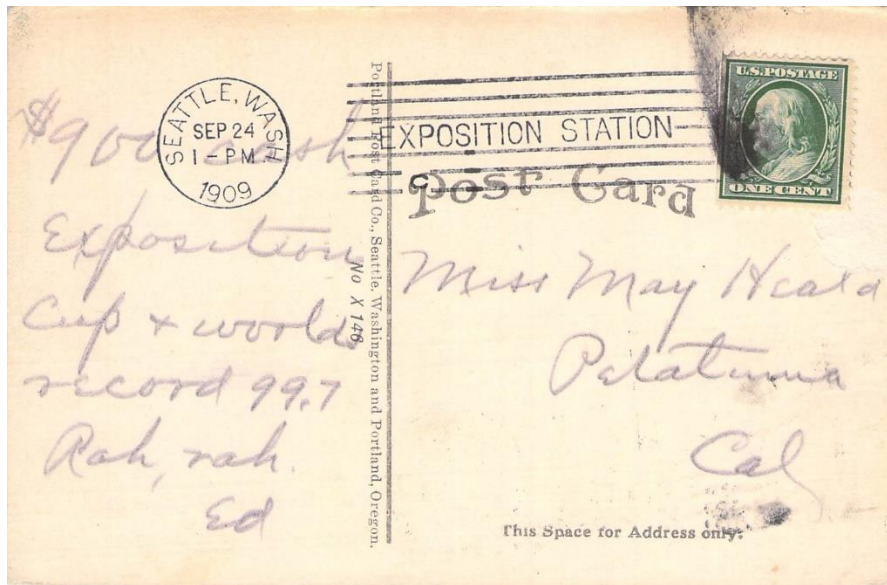 SEATTLE, WASH.
SEP 24
1 - PM
1909
EXPOSITION STATION
U.S.POSTAGE
ONE CENT
Post Card
$900 cash
Exposition
Cup & worlds
record 99.7
Rah, rah.
Ed
No X 146
Portland Post Card Co., Seattle, Washington and Portland, Oregon.
Miss May Heald
Petaluma
Cal
This Space for Address only.